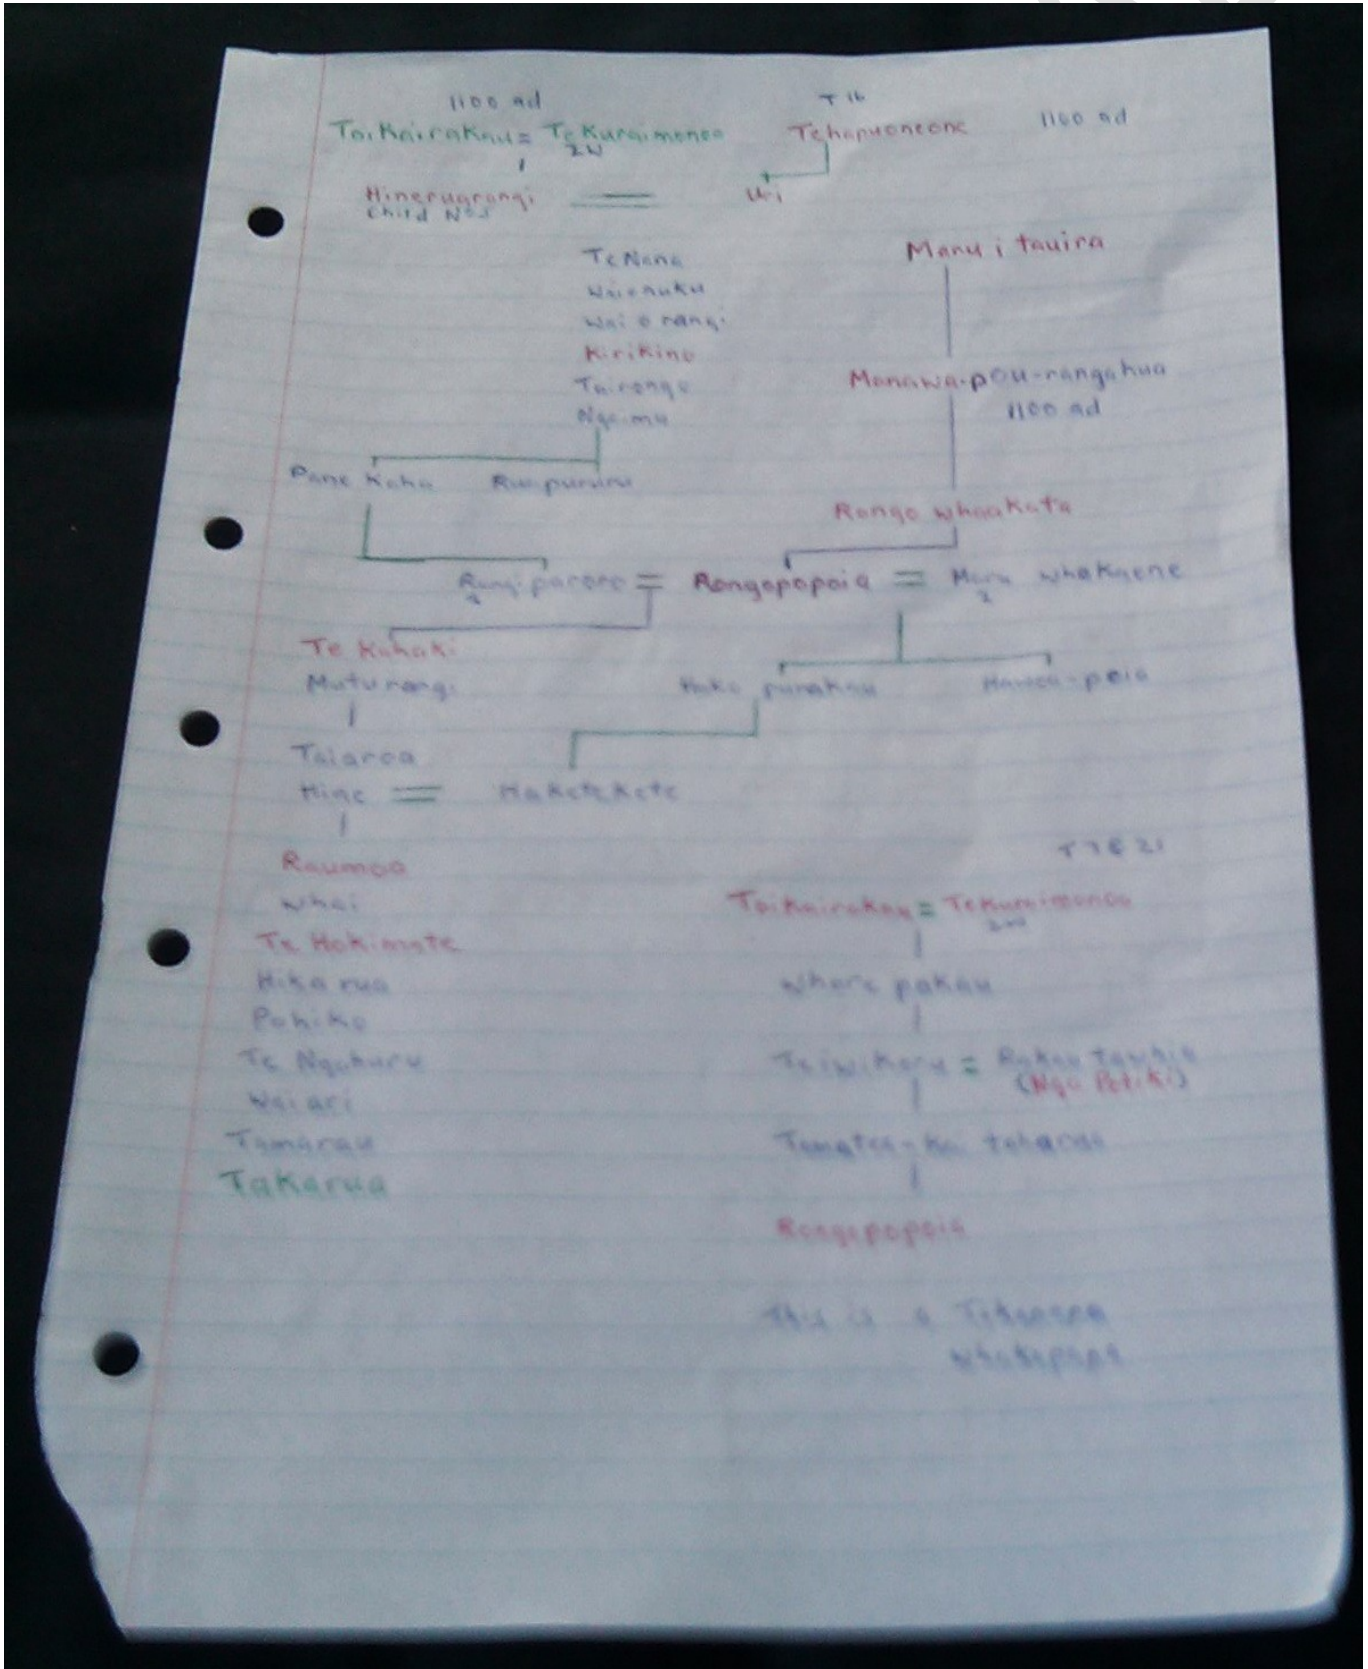 1100 ad
T 16
Taikairakau = TeKuraimonoa
2W
Tehapuoneone
1100 ad
Hineruarangi
Child No 5
Uri
Te Nana
Waionuku
Wai o rangi
Kirikino
Tairongo
Ngaimu
Manu i tauira
Manawa-pou-rangahua
1100 ad
Pane Kaha
Ruapururu
Rongo whaakata
Rangiparoro = Rongopopoia = Maru whakaene
2
2
Te Kahaki
Muturangi
Hako purakau
Hawea-poia
Taiaroa
Hine = Haketekete
Raumoa
whai
Te Hokimate
Hika rua
Pohiko
Te Ngahuru
Wai ari
Tamarau
Takarua
Taikairakau = TeKuraimonoa
2W
Whare pakau
Teiwikoru = Rakau Tawhia
(Nga Potiki)
Tamatea-ki
Rongopopoia
This is a
whakapapa